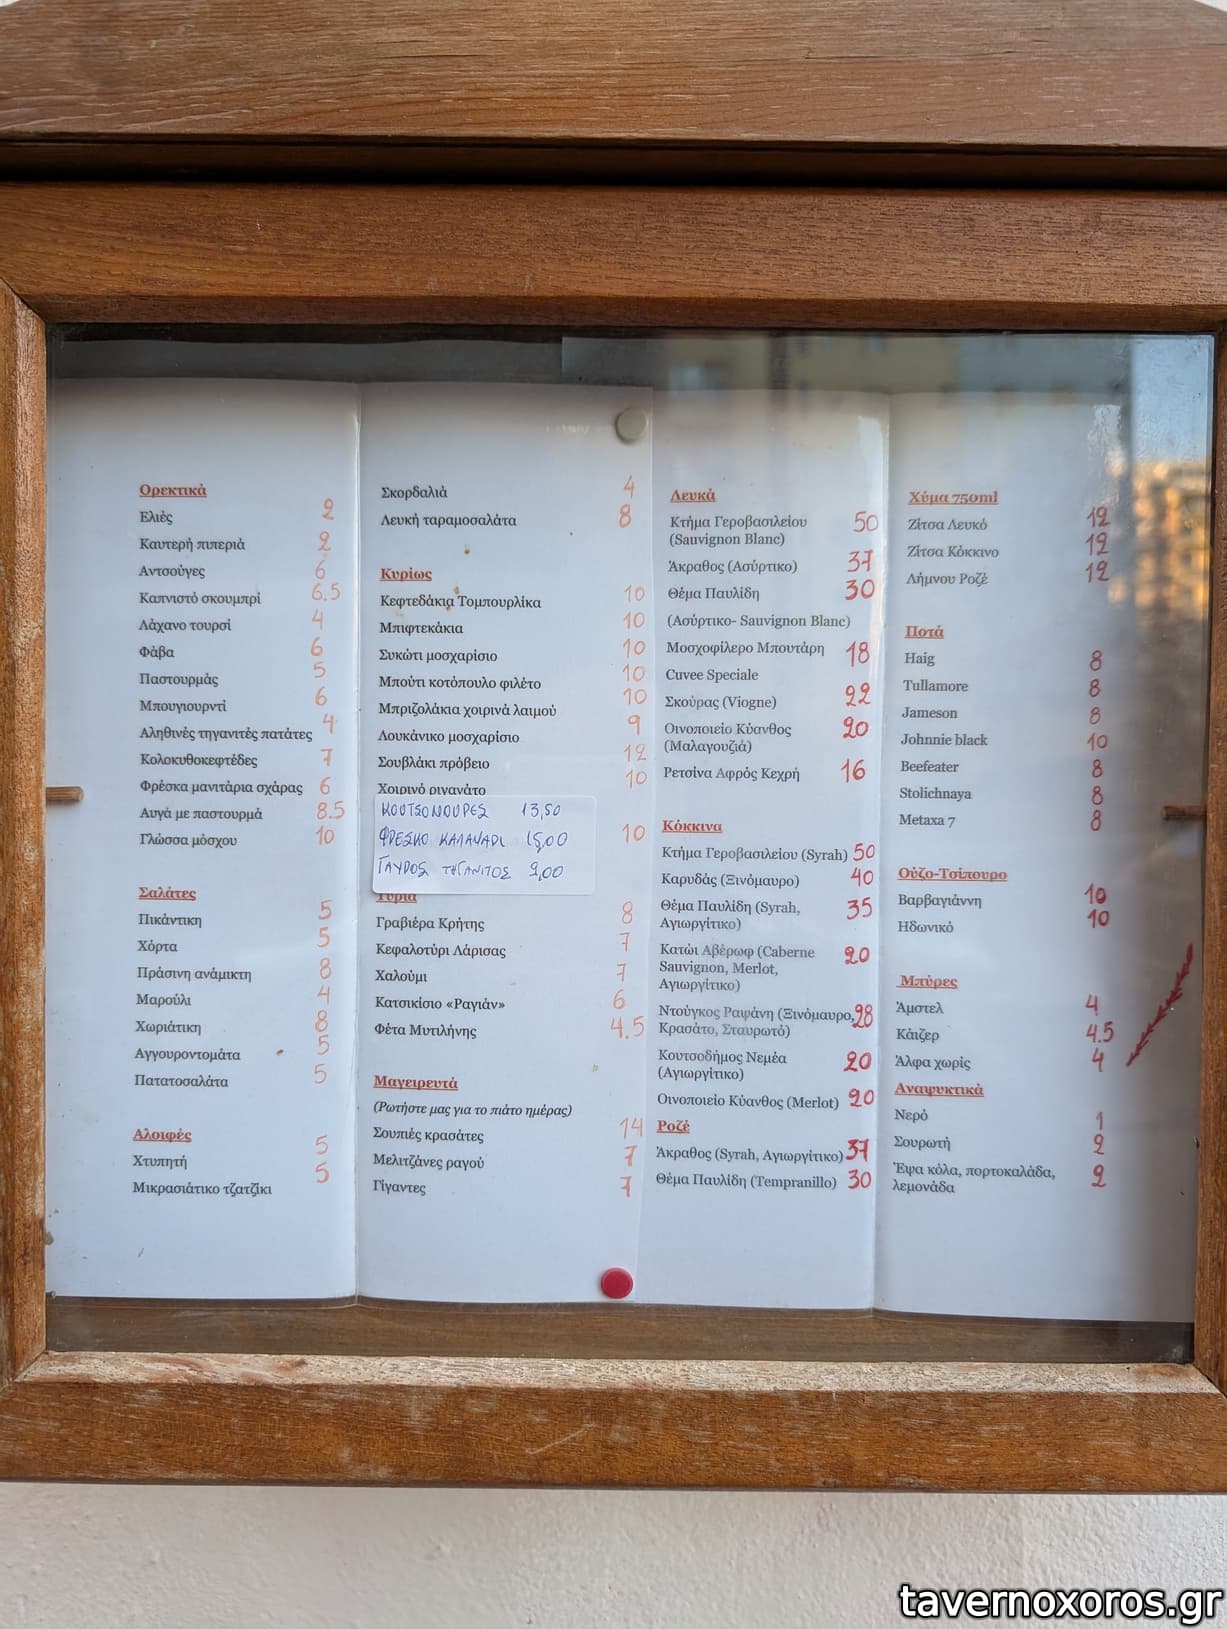 Ορεκτικά
Ελιές 2
Καυτερή πιπεριά 2
Αντσούγες 6
Καπνιστό σκουμπρί 6.5
Λάχανο τουρσί 4
Φάβα 6
Παστουρμάς 5
Μπουγιουρντί 6
Αληθινές τηγανιτές πατάτες 4
Κολοκυθοκεφτέδες 7
Φρέσκα μανιτάρια σχάρας 6
Αυγά με παστουρμά 8.5
Γλώσσα μόσχου 10
Σαλάτες
Πικάντικη 5
Χόρτα 5
Πράσινη ανάμικτη 8
Μαρούλι 4
Χωριάτικη 8
Αγγουροντομάτα 5
Πατατοσαλάτα 5
Αλοιφές
Χτυπητή 5
Μικρασιάτικο τζατζίκι 5
Σκορδαλιά 4
Λευκή ταραμοσαλάτα 8
Κυρίως
Κεφτεδάκια Τομπουρλίκα 10
Μπιφτεκάκια 10
Συκώτι μοσχαρίσιο 10
Μπούτι κοτόπουλο φιλέτο 10
Μπριζολάκια χοιρινά λαιμού 10
Λουκάνικο μοσχαρίσιο 9
Σουβλάκι πρόβειο 12
Χοιρινό ριγανάτο 10
ΚΟΥΤΣΟΜΟΥΡΕΣ 13,50
ΦΡΕΣΚΟ ΚΑΛΑΜΑΡΙ 15,00
10
ΓΑΥΡΟΣ ΤΗΓΑΝΙΤΟΣ 9,00
Τυριά
Γραβιέρα Κρήτης 8
Κεφαλοτύρι Λάρισας 7
Χαλούμι 7
Κατσικίσιο «Ραγιάν» 6
Φέτα Μυτιλήνης 4.5
Μαγειρευτά
(Ρωτήστε μας για το πιάτο ημέρας)
Σουπιές κρασάτες 14
Μελιτζάνες ραγού 7
Γίγαντες 7
Λευκά
Κτήμα Γεροβασιλείου 50
(Sauvignon Blanc)
Άκραθος (Ασύρτικο) 37
Θέμα Παυλίδη 30
(Ασύρτικο- Sauvignon Blanc)
Μοσχοφίλερο Μπουτάρη 18
Cuvee Speciale
Σκούρας (Viogne) 22
Οινοποιείο Κύανθος 20
(Μαλαγουζιά)
Ρετσίνα Αφρός Κεχρή 16
Κόκκινα
Κτήμα Γεροβασιλείου (Syrah) 50
Καρυδάς (Ξινόμαυρο) 40
Θέμα Παυλίδη (Syrah, 35
Αγιωργίτικο)
Κατώι Αβέρωφ (Caberne 20
Sauvignon, Merlot,
Αγιωργίτικο)
Ντούγκος Ραψάνη (Ξινόμαυρο, 28
Κρασάτο, Σταυρωτό)
Κουτσοδήμος Νεμέα 20
(Αγιωργίτικο)
Οινοποιείο Κύανθος (Merlot) 20
Ροζέ
Άκραθος (Syrah, Αγιωργίτικο) 37
Θέμα Παυλίδη (Tempranillo) 30
Χύμα 750ml
Ζίτσα Λευκό 12
Ζίτσα Κόκκινο 12
Λήμνου Ροζέ 12
Ποτά
Haig 8
Tullamore 8
Jameson 8
Johnnie black 10
Beefeater 8
Stolichnaya 8
Metaxa 7 8
Ούζο-Τσίπουρο
Βαρβαγιάννη 10
Ηδωνικό 10
Μπύρες
Άμστελ 4
Κάιζερ 4.5
Άλφα χωρίς 4
Αναψυκτικά
Νερό 1
Σουρωτή 2
Έψα κόλα, πορτοκαλάδα, 2
λεμονάδα
tavernoxoros.gr